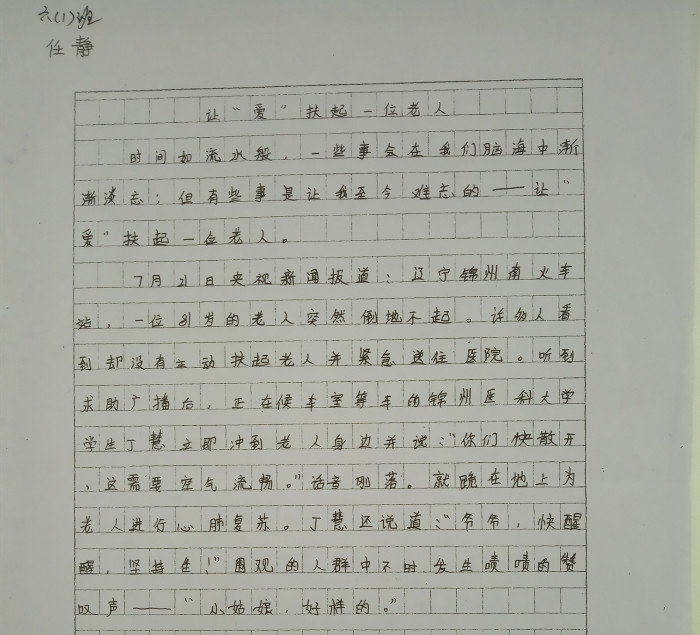 六(1)班
任静
让“爱”扶起一位老人
时间如流水般，一些事会在我们脑海中渐
渐淡忘；但有些事是让我至今难忘的——让“
爱”扶起一位老人。
7月21日央视新闻报道：辽宁锦州南火车
站，一位81岁的老人突然倒地不起。许多人看
到却没有主动扶起老人并紧急送住医院。听到
求助广播后，正在候车室等车的锦州医科大学
学生丁慧立即冲到老人身边并说：“你们快散开
，这需要空气流畅。”话音刚落。就跪在地上为
老人进行心肺复苏。丁慧还说道：“爷爷，快醒
醒，坚持住！”围观的人群中不时发生啧啧的赞
叹声——“小姑娘，好样的。”